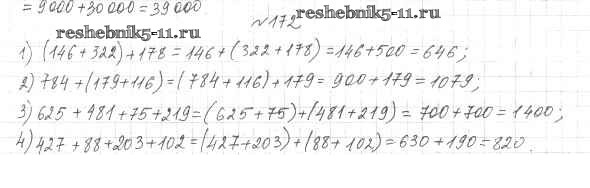 = 9000 + 30 000 = 39 000
№172 reshebnik5-11.ru
reshebnik5-11.ru
1) (146 + 322) + 178 = 146 + (322 + 178) = 146 + 500 = 646;
2) 784 + (179 + 116) = (784 + 116) + 179 = 900 + 179 = 1079;
3) 625 + 481 + 75 + 219 = (625 + 75) + (481 + 219) = 700 + 700 = 1400;
4) 427 + 88 + 203 + 102 = (427 + 203) + (88 + 102) = 630 + 190 = 820.